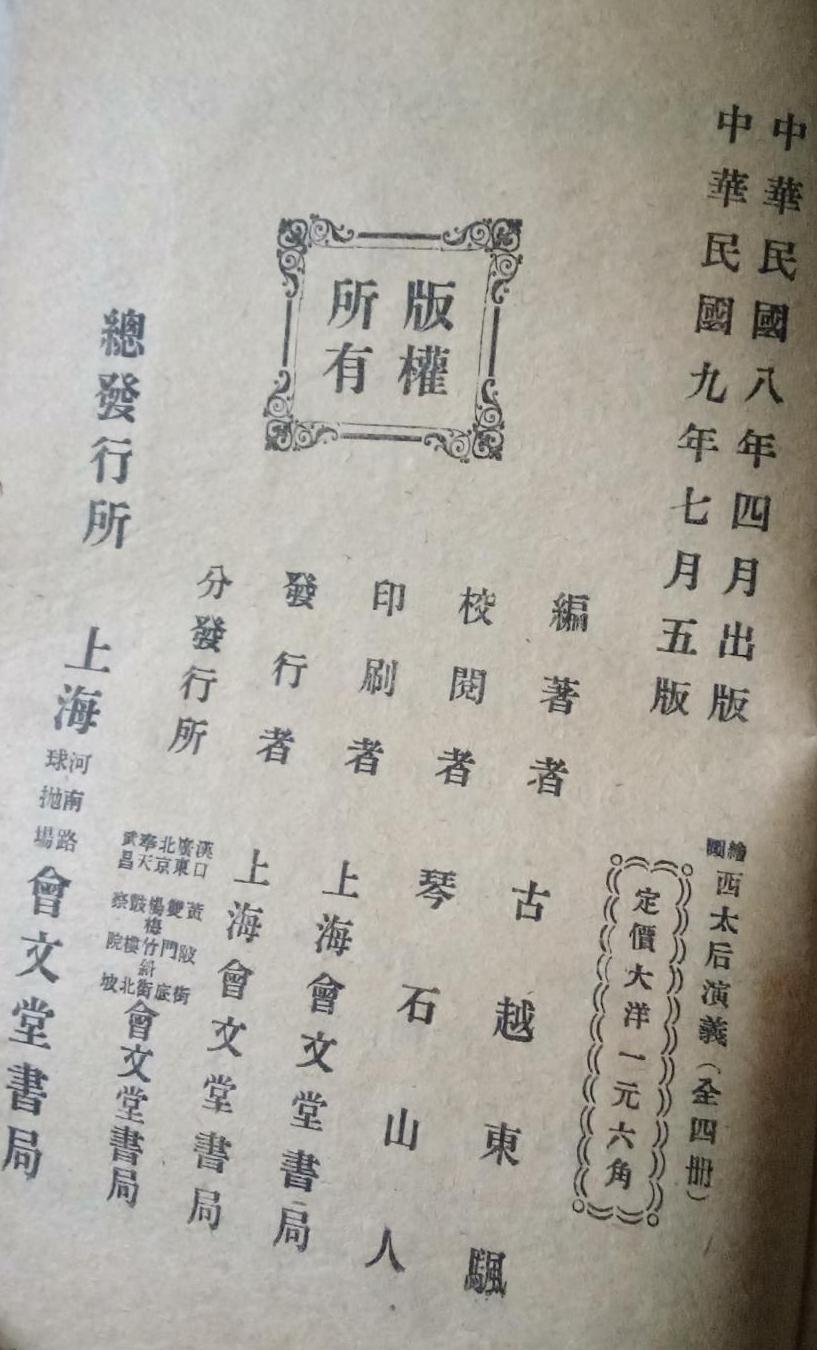 中華民國八年四月出版
中華民國九年七月五版
繪圖西太后演義（全四册）
定價大洋一元六角
版權
所有
編著者 古越東颿
校閱者 琴石山人
印刷者 上海會文堂書局
發行者 上海會文堂書局
分發行所 漢口黃陂街 廣東雙門底 北京楊梅竹斜街 奉天鼓樓北 武昌察院坡 會文堂書局
總發行所 上海河南路拋球場會文堂書局